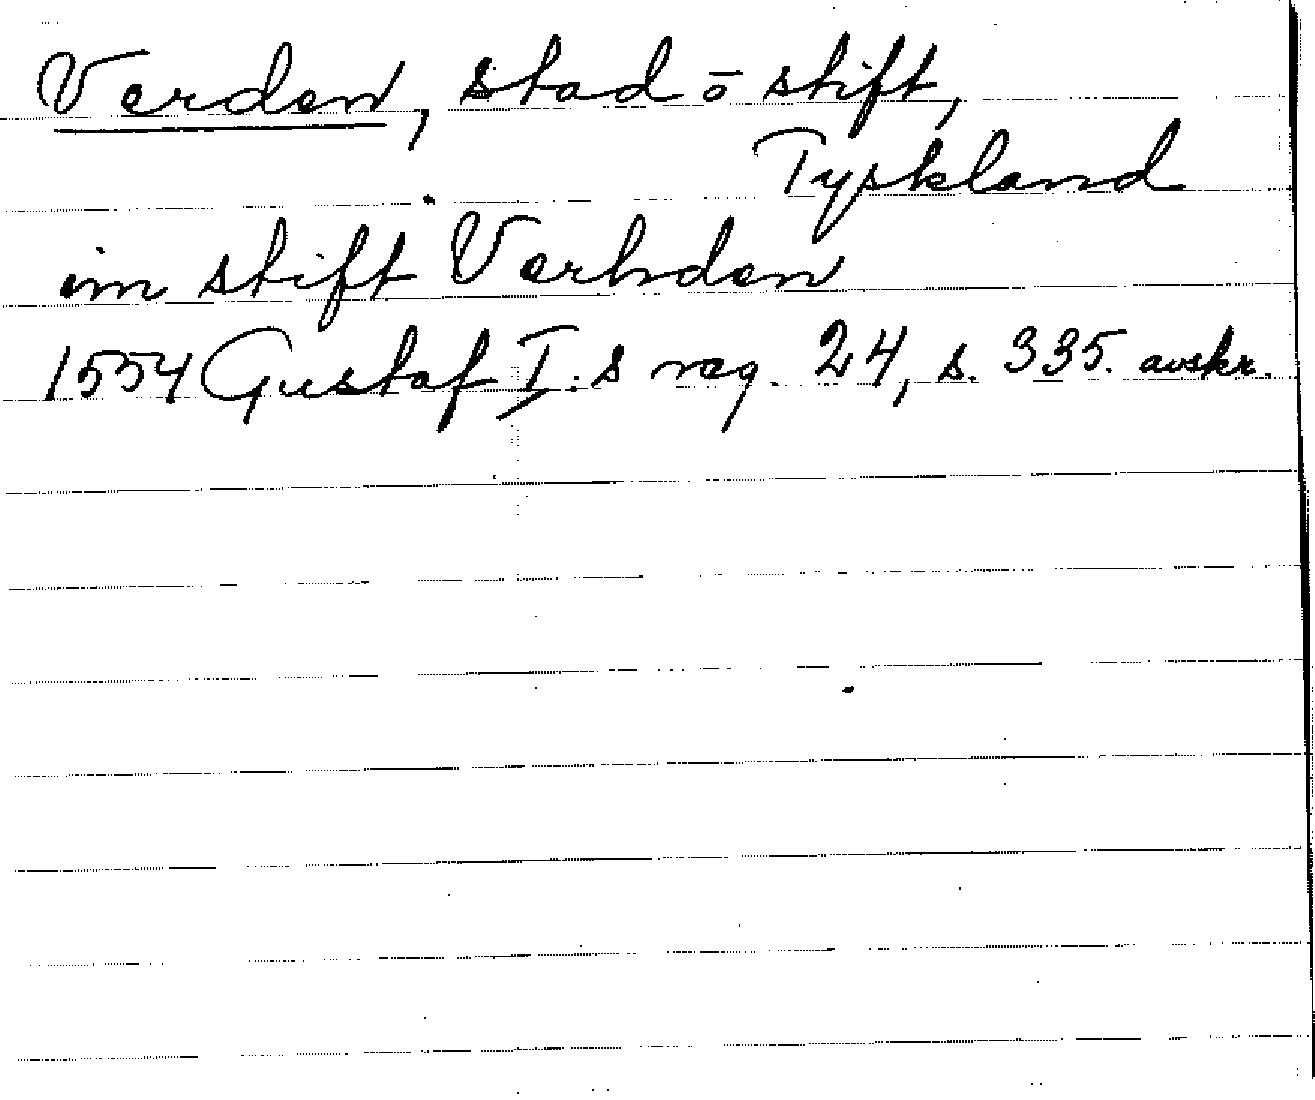 Verden, stad o stift,
Tyskland
im stift Verhden
1554 Gustaf I:s reg. 24, s. 335. avskr.